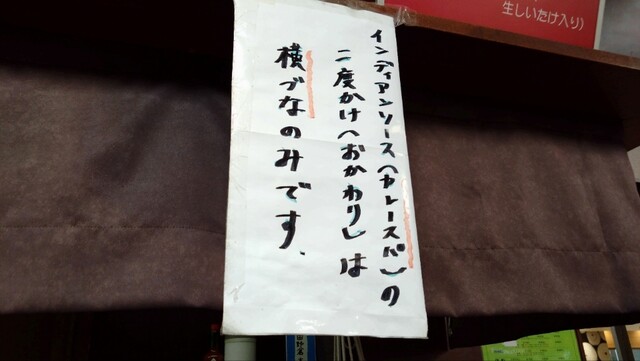 インディアンソース(カレースパ)の
二度かけ(おかわり)は
横づなのみです.
生しいたけ入り)